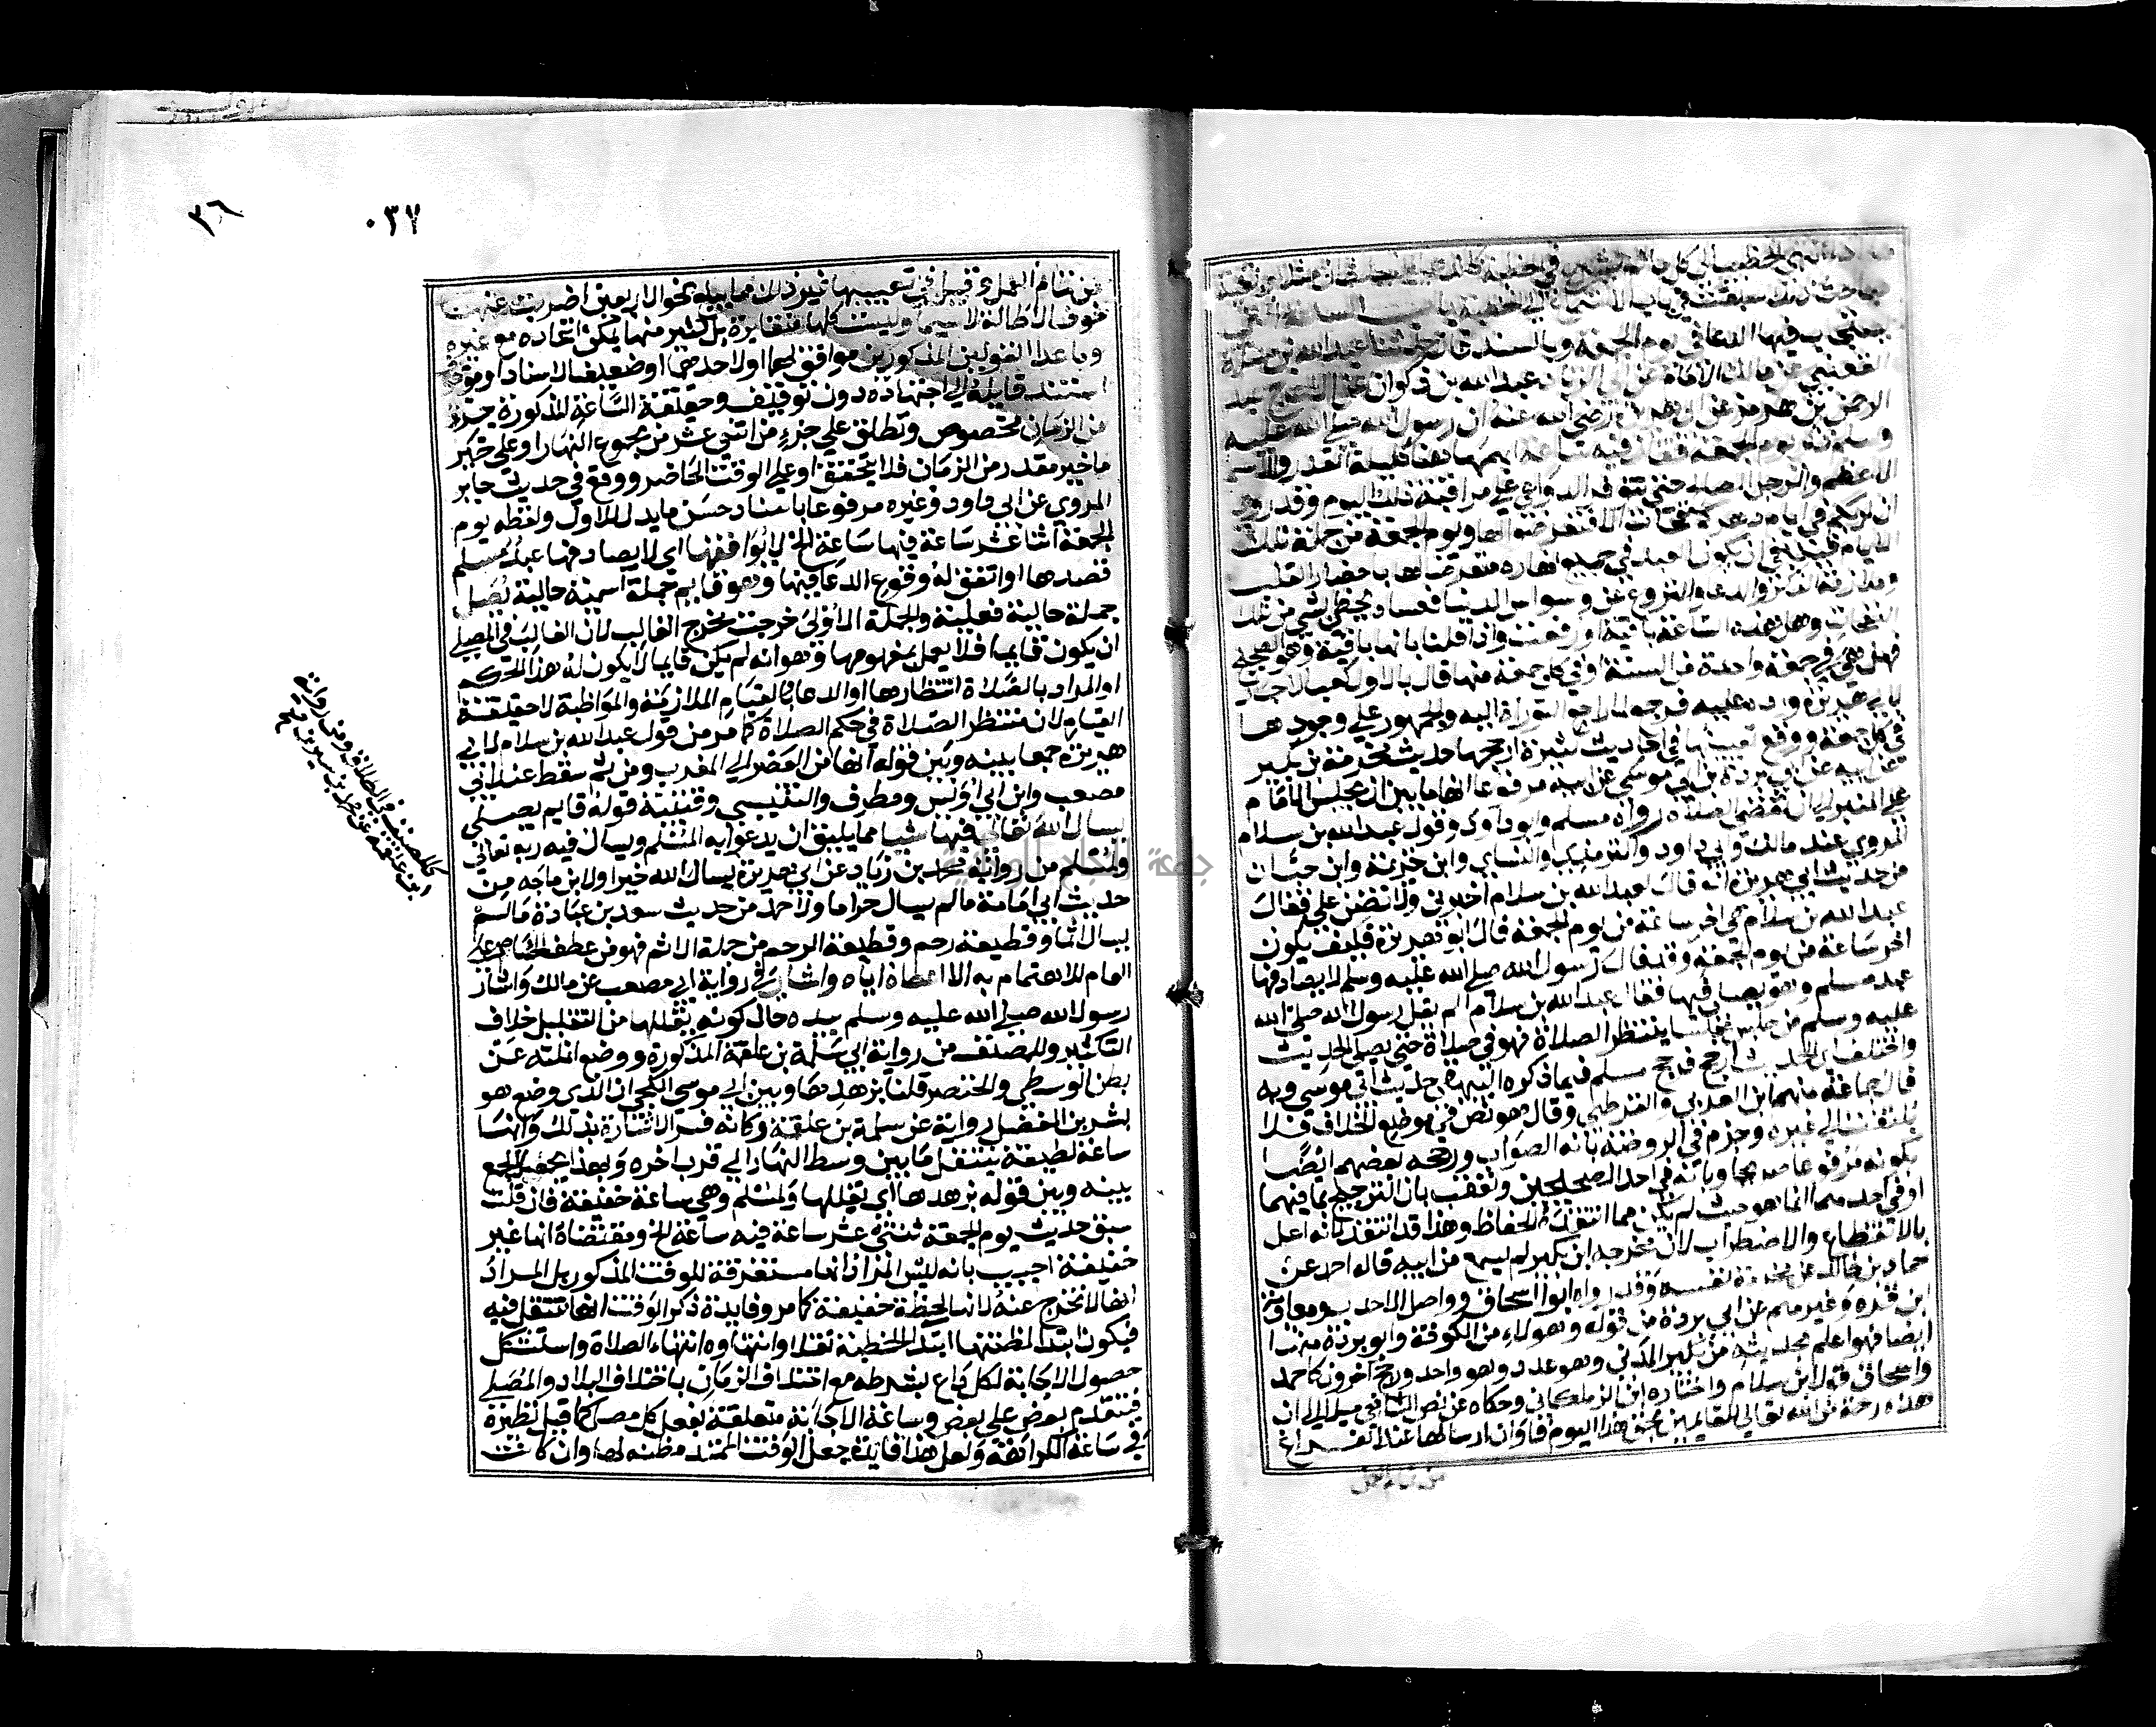 يستجاب فيها الدعا في يوم الجمعة وبالسند قال حدثنا عبد الله بن مسلمة
القعنبي عن مالك الامام عن ابي الزناد عبد الله بن ذكوان عن الاعرج عبد
الرحمن بن هرمز عن ابي هريرة رضي الله عنه ان رسول الله صلي الله عليه
وسلم ذكر يوم الجمعة فقال فيه ساعة ابهمها هنا كليلة القدر والاسم
الاعظم والرجل الصالح حتي تتوفر الدواعي علي مراقبة ذلك اليوم وقد روي
ان لربكم في ايام دهركم نفحات الا فتعرضوا لها ويوم الجمعة من جملة تلك
الايام فينبغي ان يكون العبد في جميع نهاره متعرضا لها باحضار القلب
وملازمة الذكر والدعا والنزوع عن وسواس الدنيا فعساه يحظي بشي من تلك
النفحات وهل هذه الساعة باقية او رفعت واذا قلنا بانها باقية وهو الصحيح
فهل هي في جمعة واحدة من السنة او في كل جمعة منها قال بالاول كعب الاحبار
لابي هريرة ورده عليه فرجع لما راجع التوراة اليه والجمهور علي وجودها
في كل جمعة ووقع تعيينها في احاديث كثيرة ارجحها حديث مخرمة بن بكير
عن ابيه عن ابي بردة بن ابي موسي عن ابيه مرفوعا انها ما بين ان يجلس الامام
علي المنبر الي ان يقضي الصلاة رواه مسلم وابو داود وقول عبد الله بن سلام
المروي عند مالك وابي داود والترمذي والنساي وابن خزيمة وابن حبان
من حديث ابي هريرة انه قال لعبد الله بن سلام اخبرني ولا تضن علي فقال
عبد الله بن سلام هي اخر ساعة من يوم الجمعة قال ابو هريرة فكيف يكون
اخر ساعة من يوم الجمعة وقد قال رسول الله صلي الله عليه وسلم لا يصادفها
عبد مسلم وهو يصلي فيها فقال عبد الله بن سلام الم يقل رسول الله صلي الله
عليه وسلم من جلس مجلسا ينتظر الصلاة فهو في صلاة حتي يصلي الحديث
واختلف اي الحديثين ارجح فرجح مسلم فيما ذكره البيهقي حديث ابي موسي وبه
قال جماعة منهم ابن العربي والقرطبي وقال هو نص في موضع الخلاف فلا
يلتفت الي غيره وجزم في الروضة بانه الصواب ورجحه بعضهم ايضا
بكونه مرفوعا صريحا وبانه في احد الصحيحين وتعقب بان الترجيح بما فيهما
او في احدهما انما هو حيث لم يكن مما انتقده الحفاظ وهذا قد انتقد لانه اعل
بالانقطاع والاضطراب لان مخرمة ابن بكير لم يسمع من ابيه قاله احمد عن
حماد بن خالد عن مخرمة نفسه وقد رواه ابو اسحاق وواصل الاحدب ومعاوية
ابن قرة وغيرهم عن ابي بردة من قوله وهولاء من الكوفة وابو بردة منها
ايضا فهو اعلم بحديثه من بكير المدني وهو عدد وهو واحد ورجح اخرون كاحمد
واسحاق قول ابن سلام واختاره ابن الزملكاني وحكاه عن نص الشافعي ميلا الي ان
هذه رحمة من الله تعالي للقايمين بحق هذا اليوم فاوان ارسالها عند الفراغ
٣٦
٠٣٧
من تمام العمل وقيل في تعيينها غير ذلك مما يبلغ نحو الاربعين اضربت عنها
خوف الاطالة لا سيما وليست كلها متغايرة بل كثير منها يمكن اتحاده مع غيره
وما عدا القولين المذكورين موافق لهما او لاحدهما او ضعيف الاسناد او موقوف
استند قايله الي اجتهاده دون توقيف وحقيقة الساعة المذكورة جزء
من الزمان مخصوص وتطلق علي جزء من اثني عشر من مجموع النهار او علي جزء
ما غير مقدر من الزمان فلا يتحقق او علي الوقت الحاضر ووقع في حديث جابر
المروي عن ابي داود وغيره مرفوعا باسناد حسن ما يدل للاول ولفظه يوم
الجمعة اثنا عشر ساعة فيها ساعة الخ لا يوافقها اي لا يصادفها عبد مسلم
قصدها او اتفق له وقوع الدعا فيها وهو قايم جملة اسمية حالية يصلي
جملة حالية فعلية والجملة الاولي خرجت مخرج الغالب لان الغالب في المصلي
ان يكون قايما فلا يعمل بمفهومها وهو انه لم يكن قايما لا يكون له هذا الحكم
او المراد بالصلاة انتظارها او الدعا وبالقيام الملازمة والمواظبة لا حقيقة
القيام لان منتظر الصلاة في حكم الصلاة كما مر من قول عبد الله بن سلام لابي
هريرة جمعا بينه وبين قوله انها من العصر الي المغرب ومن ثم سقط عند ابي
مصعب وابن ابي اويس ومطرف والتنيسي وقتيبة قوله قايم يصلي
يسال الله تعالي فيها شيا مما يليق ان يدعو به المسلم ويسال فيه ربه تعالي
ولمسلم من رواية محمد بن زياد عن ابي هريرة يسال الله خيرا ولابن ماجه من
حديث ابي امامة ما لم يسال حراما ولاحمد من حديث سعد بن عبادة ما لم
يسال اثما او قطيعة رحم وقطيعة الرحم من جملة الاثم فهو من عطف الخاص علي
العام للاهتمام به الا اعطاه اياه واشار في رواية ابي مصعب عن مالك واشار
رسول الله صلي الله عليه وسلم بيده حال كونه يقللها من التقليل خلاف
التكثير وللمصنف من رواية سلمة بن علقمة المذكورة ووضع انملته علي
بطن الوسطي والخنصر قلنا يزهدها وبين ابي موسي الكجي ان الذي وضع هو
بشر بن المفضل رواية عن سلمة بن علقمة وكانه فسر الاشارة بذلك وانها
ساعة لطيفة تنتقل ما بين وسط النهار الي قرب اخره وبهذا يحصل الجمع
بينه وبين قوله يزهدها اي يقللها ولمسلم وهي ساعة خفيفة فان قلت
سبق حديث يوم الجمعة ثنتي عشر ساعة فيه ساعة الخ ومقتضاه انها غير
خفيفة اجيب بانه ليس المراد انها مستغرقة للوقت المذكور بل المراد
انها لا تخرج عنه لانها لحظة خفيفة كما مر وفايدة ذكر الوقت انها تنتقل فيه
فيكون ابتدا مظنتها ابتدا الخطبة مثلا وانتهاوه انتهاء الصلاة واستشكل
حصول الاجابة لكل داع بشرطه مع اختلاف الزمان باختلاف البلاد والمصلي
فيتقدم بعض علي بعض وساعة الاجابة متعلقة بفعل كل مصل كما قيل نظيره
في ساعة الكراهة ولعل هذا فايدة جعل الوقت الممتد مظنة لها وان كانت